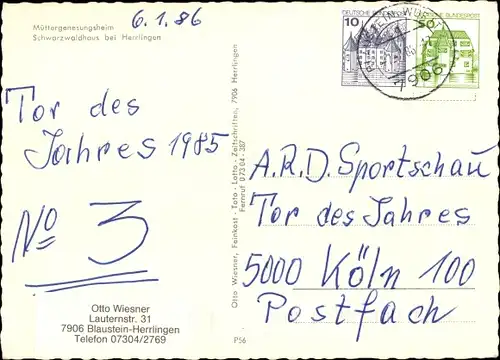 Müttergenesungsheim
Schwarzwaldhaus bei Herrlingen
6.1.86
Tor des
Jahres 1985
No 3
Otto Wiesner
Lauternstr. 31
7906 Blaustein-Herrlingen
Telefon 07304/2769
Otto Wiesner, Feinkost - Toto - Lotto - Zeitschriften, 7906 Herrlingen
Fernruf 07304-387
P56
10
DEUTSCHE BUNDESPOST
50
7906
A.R.D. Sportschau
Tor des Jahres
5000 Köln 100
Postfach